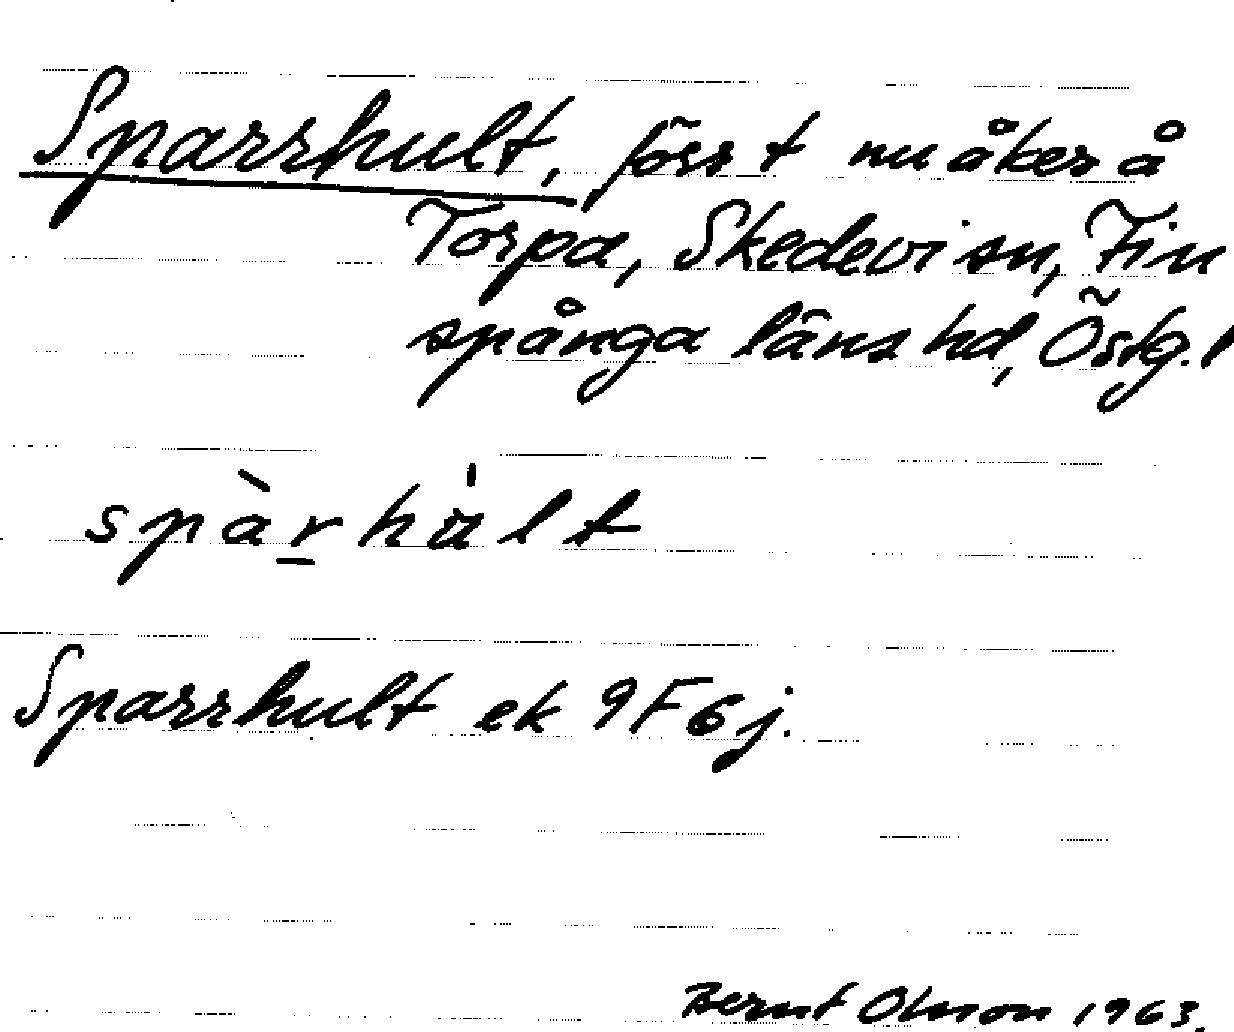 Sparrhult, förr t nu åker å
Torpa, Skedevi sn, Fin
spånga läns hd, Östg. l
spàr̲húlt
Sparrhult ek 9F6j.
Bernt Olsson 1963.